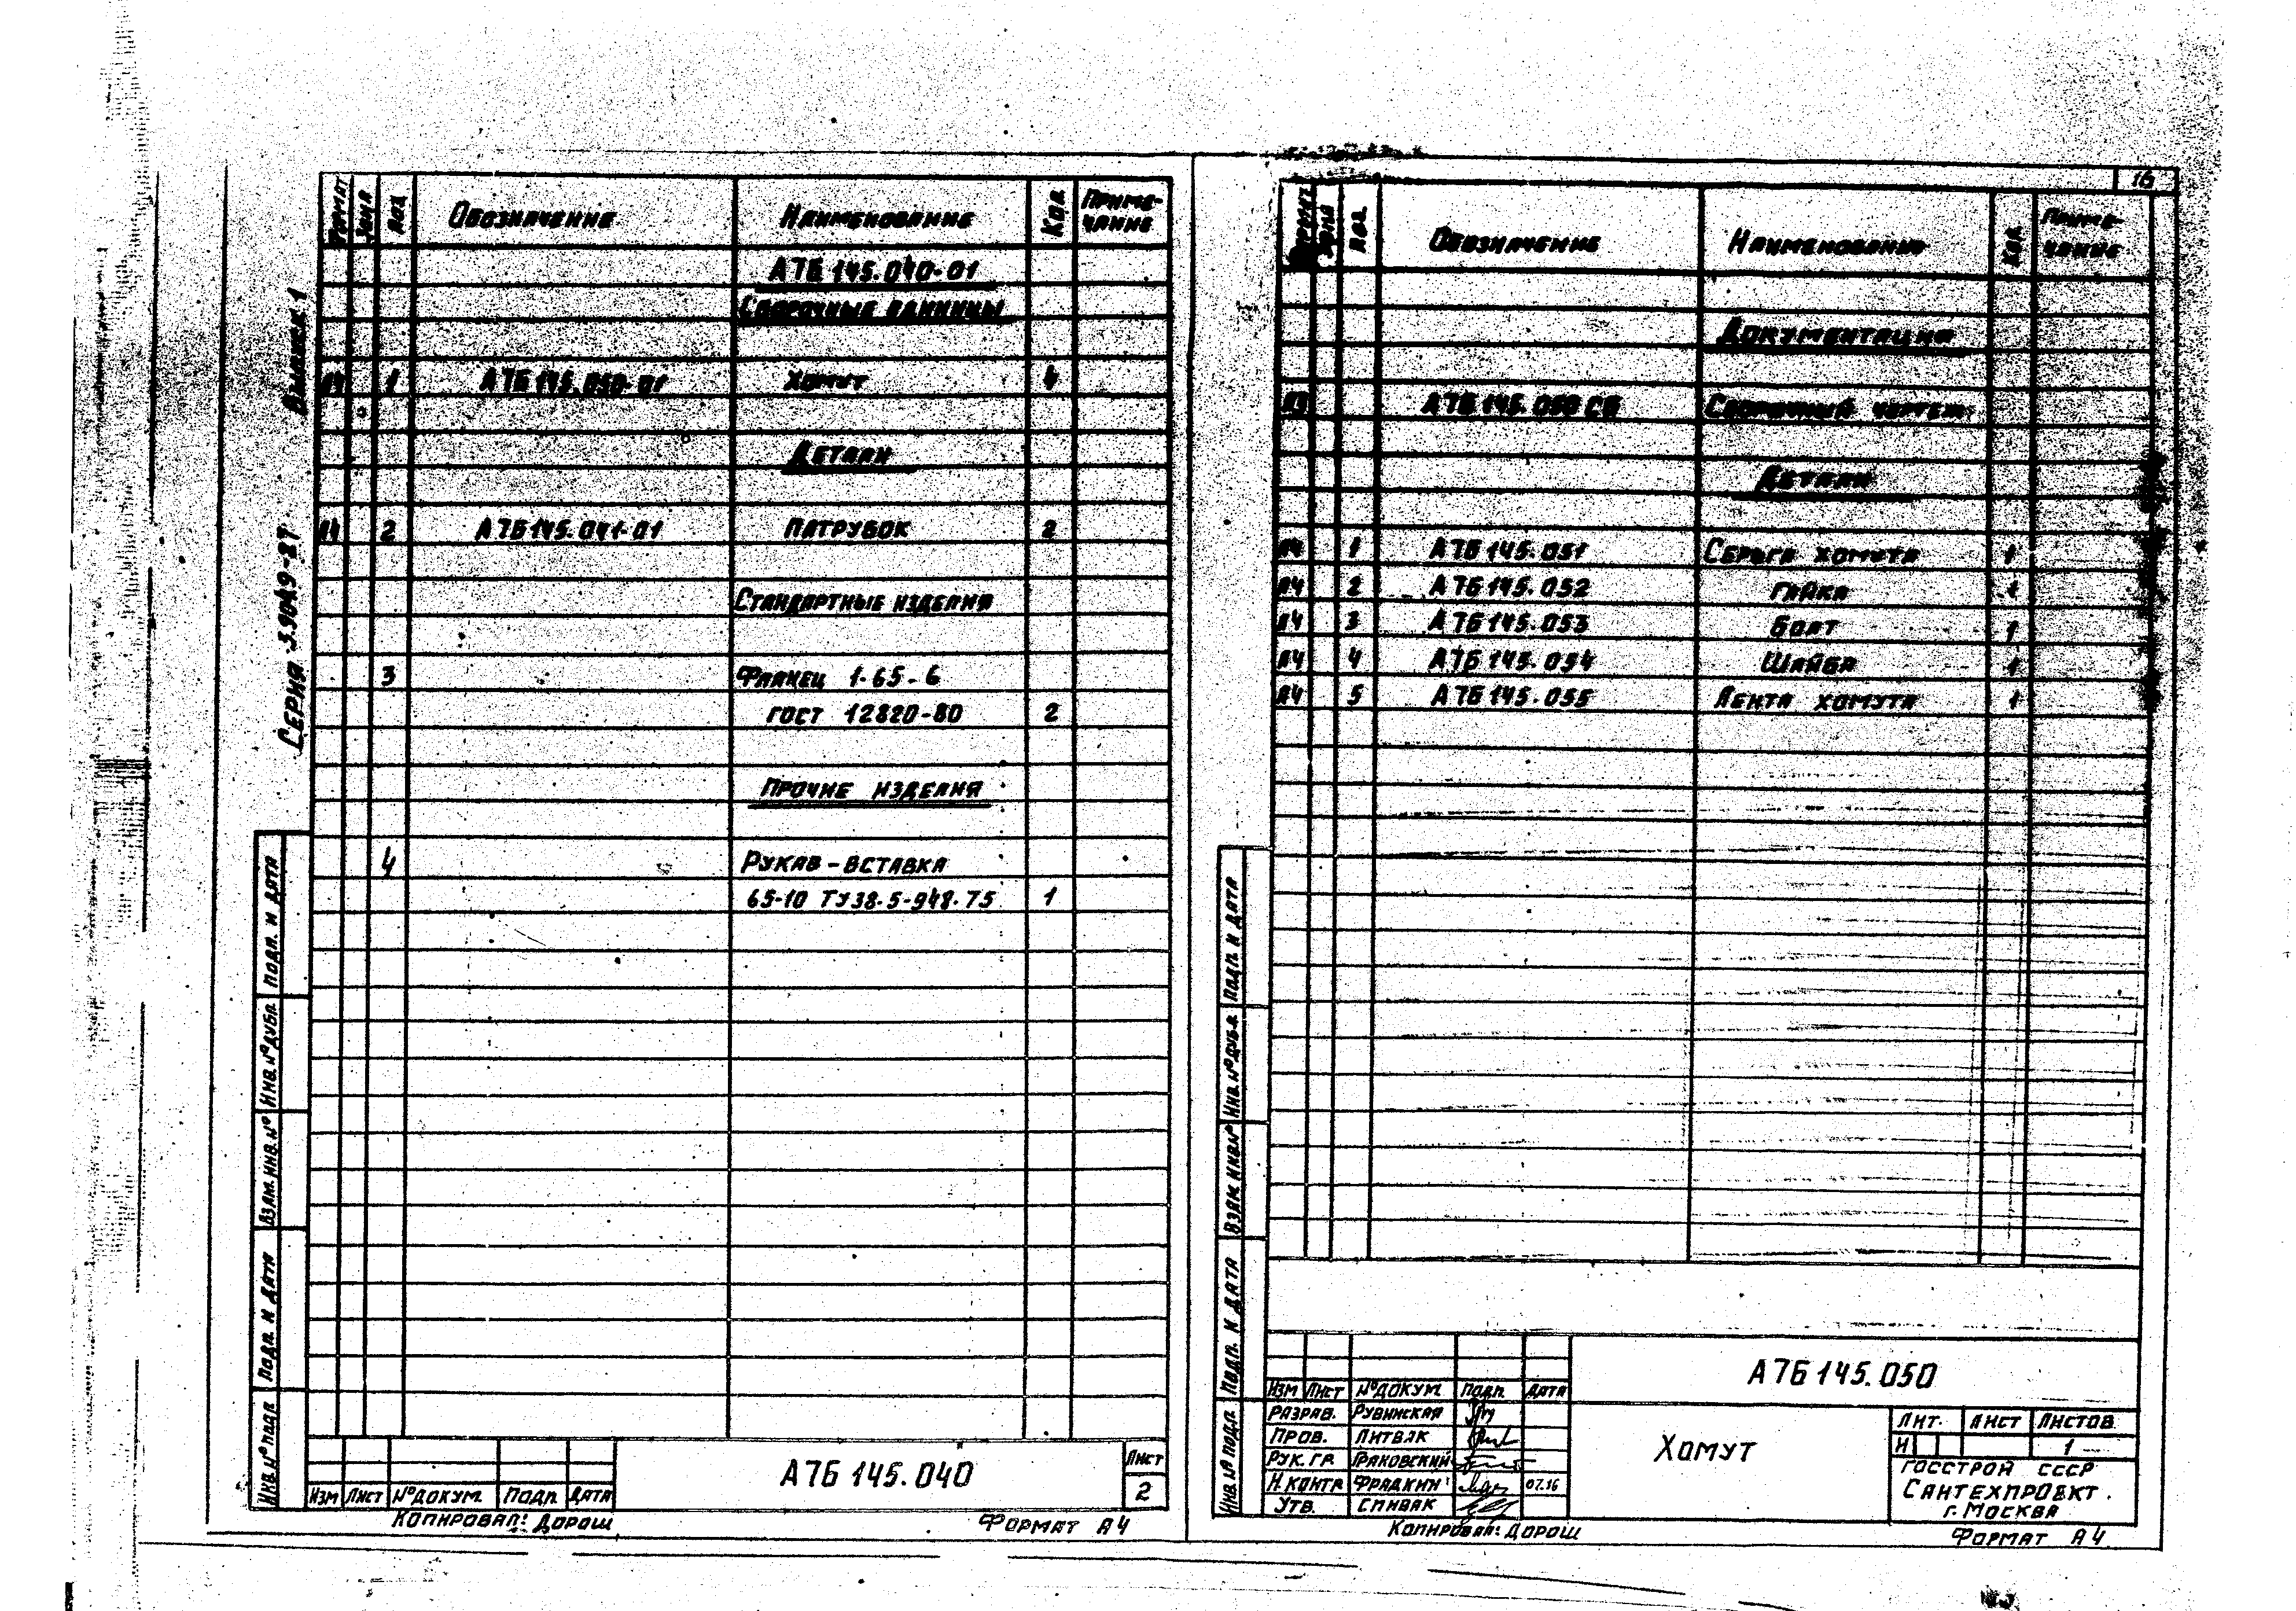 Формат Зона Поз. Обозначение Наименование Кол. Приме-
чание
А7Б 145.040-01
Сборочные единицы
А4 1 А7Б 145.050-01 Хомут 4
Детали
А4 2 А7Б 145.041-01 Патрубок 2
Стандартные изделия
3 Фланец 1-65-6
ГОСТ 12820-80 2
Прочие изделия
4 Рукав-вставка
65-10 ТУ38-5-948-75 1
Серия 3.904.9-27 Выпуск 1
Подп. и дата
Инв. № дубл.
Взам. инв. №
Подп. и дата
Инв. № подл.
Изм Лист № докум. Подп. Дата
А7Б 145.040
Лист
2
Копировал: Дорош Формат А4
16
Формат Зона Поз. Обозначение Наименование Кол. Приме-
чание
Документация
А3 А7Б 145.050 СБ Сборочный чертеж
Детали
А4 1 А7Б 145.051 Серьга хомута 1
А4 2 А7Б 145.052 Гайка 1
А4 3 А7Б 145.053 Болт 1
А4 4 А7Б 145.054 Шайба 1
А4 5 А7Б 145.055 Лента хомута 1
Подп. и дата
Инв. № дубл.
Взам. инв. №
Подп. и дата
Инв. № подл.
Изм Лист № докум. Подп. Дата
Разраб. Рувинская
Пров. Литвак
Рук. гр. Граковский
Н. контр Фрадкин
Утв. Спивак
А7Б 145.050
Хомут
Лит. Лист Листов
И 1
Госстрой СССР
Сантехпроект
г. Москва
Копировал: Дорош Формат А4